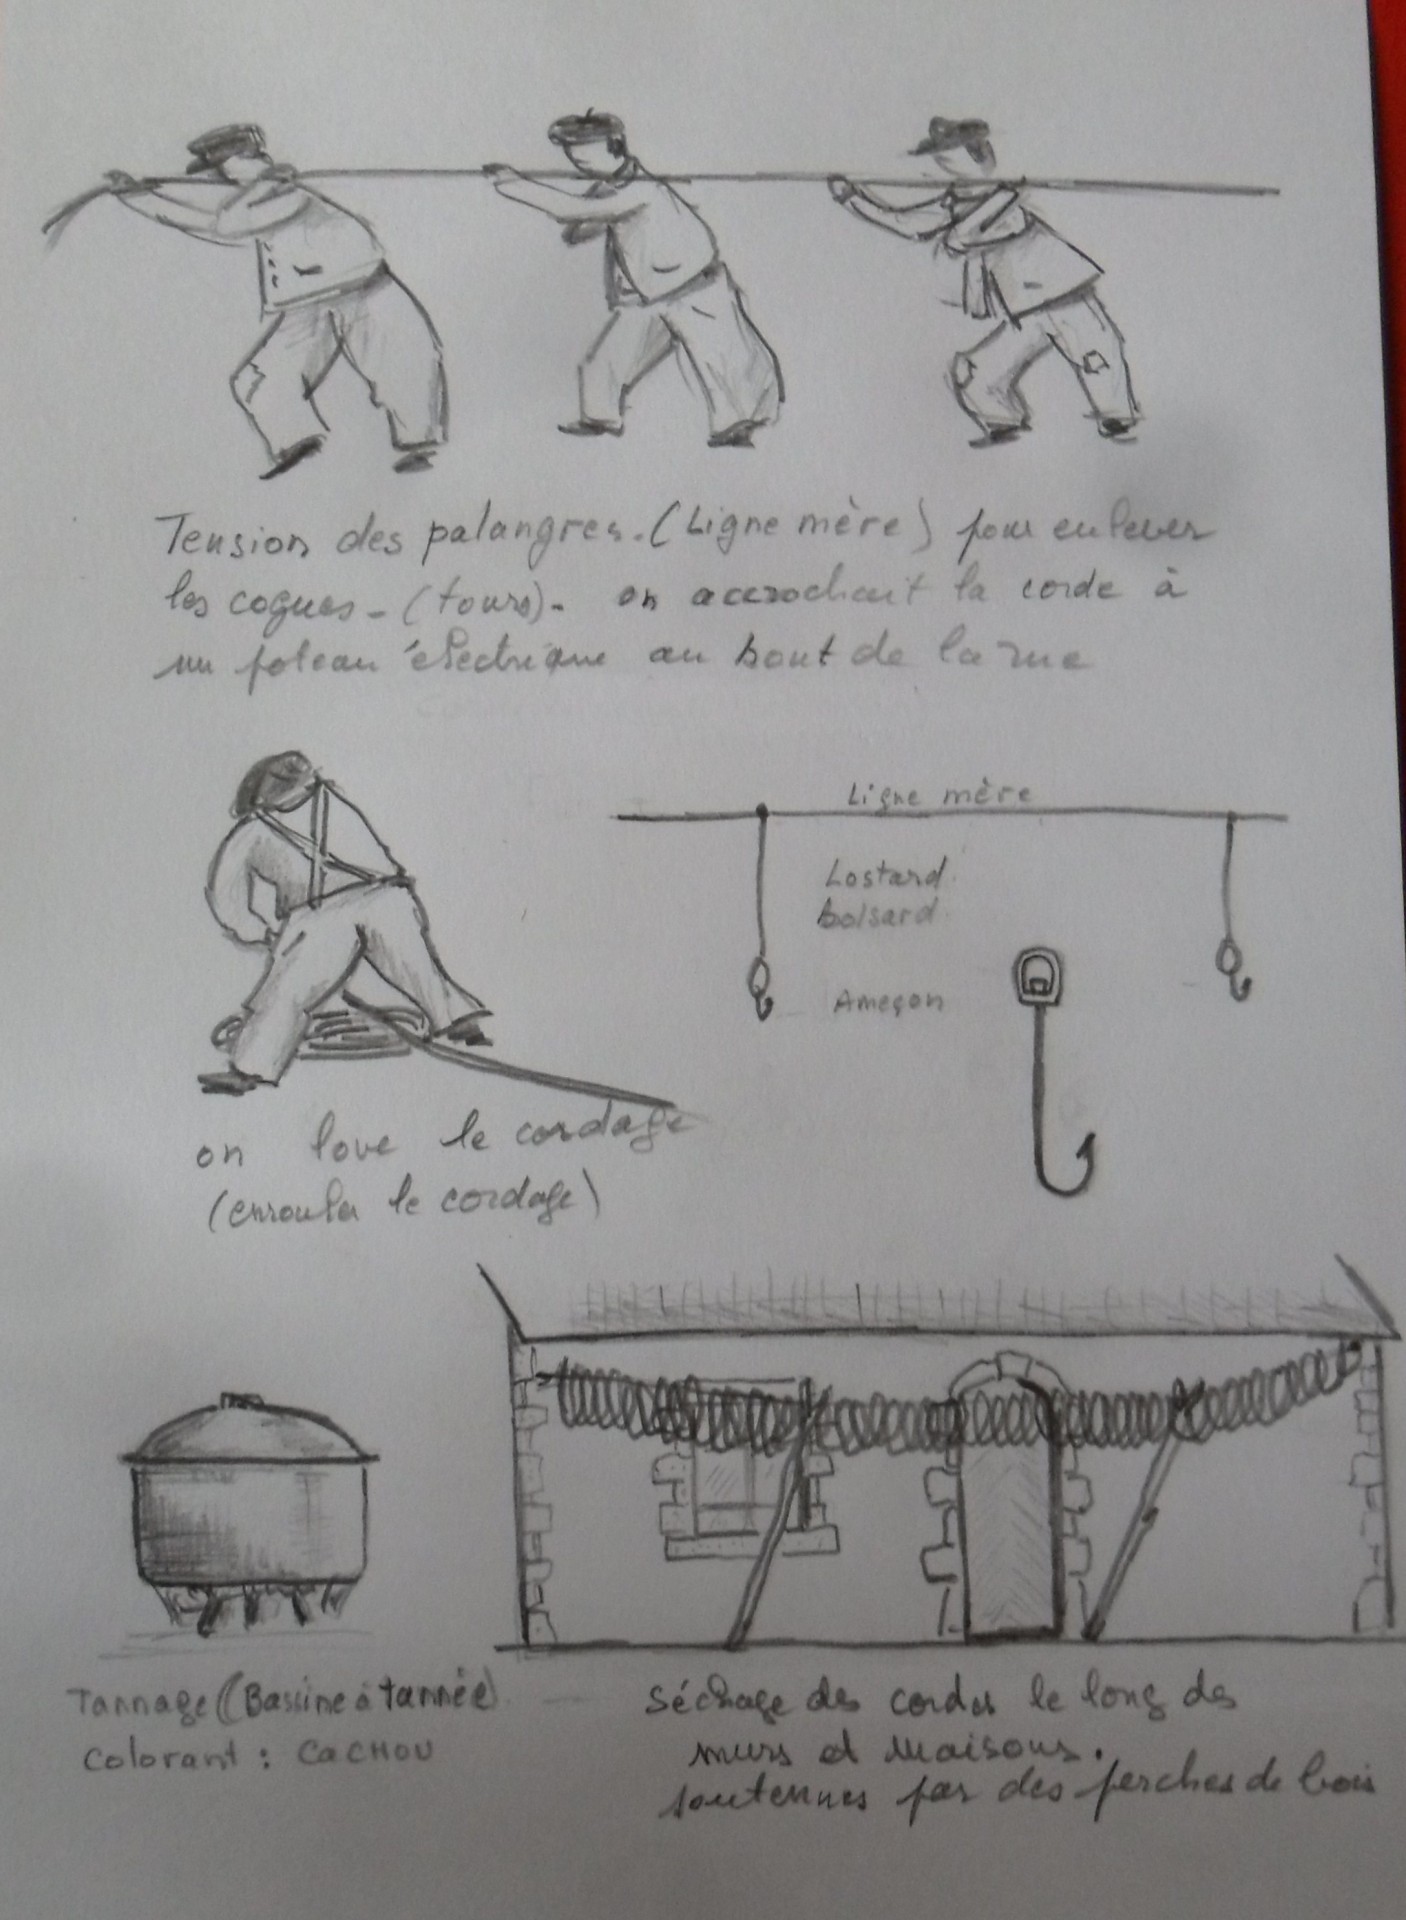 Tension des palangres. (Ligne mère) pour enlever
les coques - (tours) - on accrochait la corde à
un poteau électrique au bout de la rue
Ligne mère
Lostard
bolsard
Ameçon
on love le cordage
(enrouler le cordage)
Tannage (Bassine à tannée)
Colorant : CACHOU
Séchage des cordes le long des
murs et maisons.
soutenues par des perches de bois